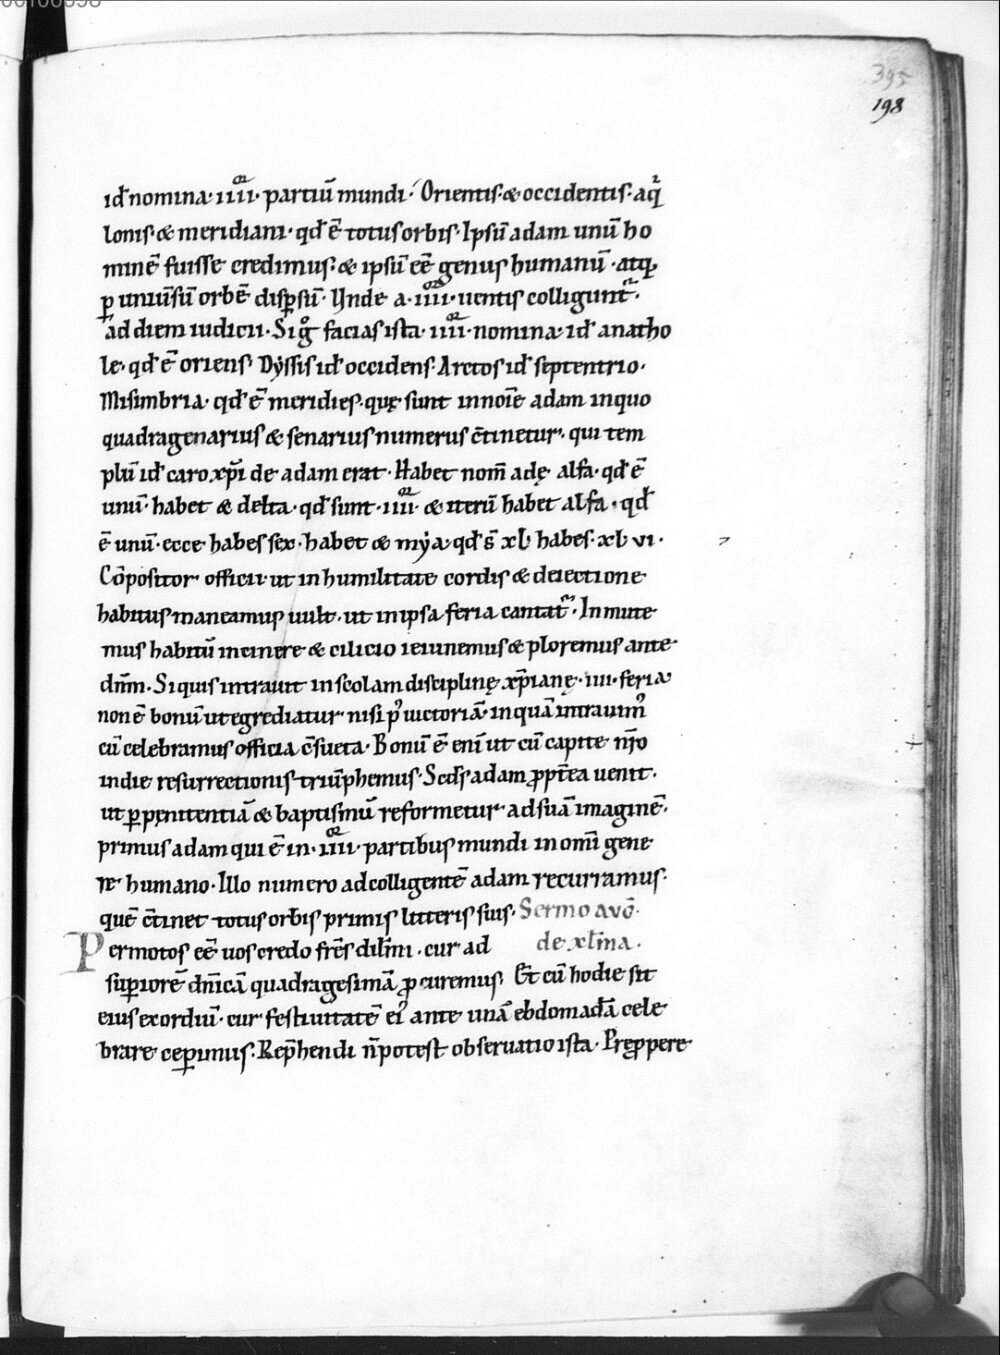 395
198
id̄ nomina· iiiior· partiū mundi· Orientis· & occidentis· aq
lonis & meridiani· qd̄ ē totus orbis· Ipsū adam unū ho
minē fuisse credimus· & ipsū eē genus humanū· atq;
ꝑ uniuersū orbē dispsū· Vnde a· iiiior· uentis colligunt᷑·
ad diem iudicii· Sigͦ facias ista· iiiior· nomina· id̄ anatho
le· qd̄ ē oriens· Dyssis id̄ occidens· Arctos id̄ septentrio·
Misimbria· qd̄ ē meridies· quę sunt in noīe adam in quo
quadragenarius & senarius numerus c̄tinetur· qui tem
plū id̄ caro xp̄i de adam erat· Habet nom̄ adę alfa· qd̄ ē
unū· habet & delta· qd̄ sunt· iiiior & iterū habet alfa· qd̄
ē unū· ecce habes sex· habet & mẏa· qd̄ s̄ xl habes· xl vi·
Cōpositor officii· ut in humilitate cordis & deiectione
habitus maneamus uult· ut in ipsa feria cantat᷑· Inmute
mus habitū in cinere & cilicio ieiunemus & ploremus ante
dn̄m· Siquis intrauit in scolam disciplinę xp̄ianę· iiii· feria
non ē bonū ut egrediatur nisi p᷒ uictoriā· in quā intrauim᷒
cū celebramus officia c̄sueta· Bonū ē eni ut cū capite nr̄o
in die resurrectionis triūphemus· Scd̄s adam ꝓpt̄ea uenit·
ut ꝑ pęnitentiā & baptismū reformetur ad suā imaginē·
primus adam qui ē in· iiiior· partibus mundi in omī gene
re humano· Illo numero ad colligentē adam recurramus·
quē c̄tinet totus orbis primis litteris suis· Sermo avḡ·
Permotos eē uos credo fr̄es dil̄mi· cur ad de xl̄ma·
supiorē dn̄icā quadragesimā ꝓcuremus· Et cū hodie sit
eius exordiū· cur festiuitatē ei᷒ ante unā ebdomadā cele
brare cepimus· Rep̄hendi n̄ potest obseruatio ista· Pręꝓpere